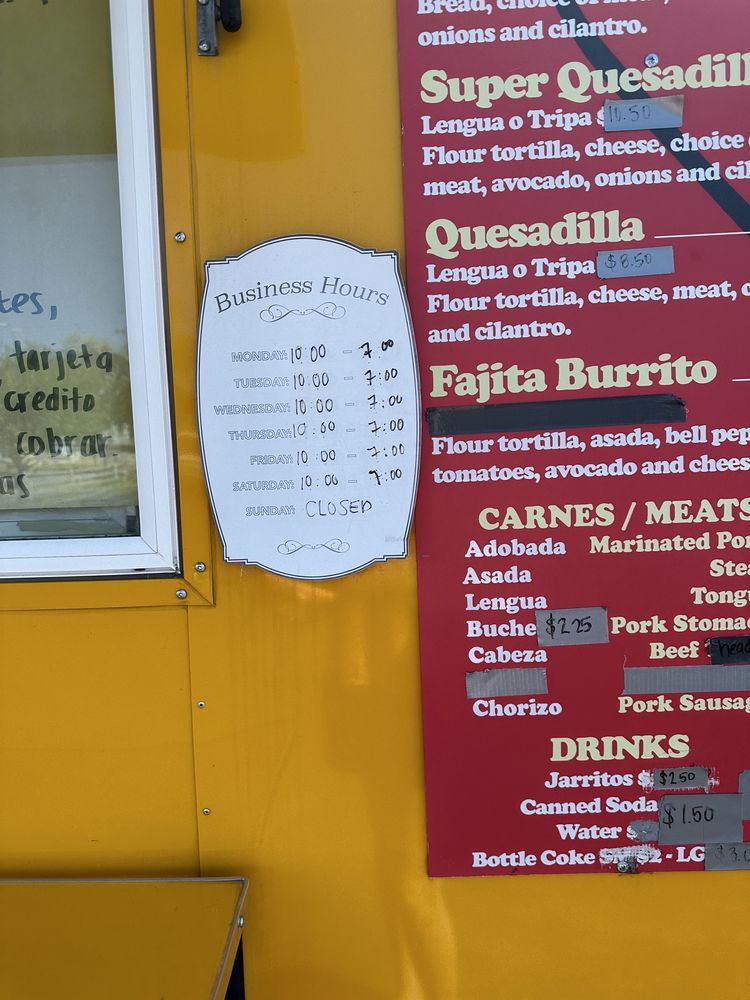 tes,
tarjeta
credito
cobrar.
as
Business Hours
MONDAY: 10:00 - 7:00
TUESDAY: 10:00 - 7:00
WEDNESDAY: 10:00 - 7:00
THURSDAY: 10:00 - 7:00
FRIDAY: 10:00 - 7:00
SATURDAY: 10:00 - 7:00
SUNDAY: CLOSED
Bread, choice of meat,
onions and cilantro.
Super Quesadill
Lengua o Tripa $10.50
Flour tortilla, cheese, choice
meat, avocado, onions and cil
Quesadilla
Lengua o Tripa $8.50
Flour tortilla, cheese, meat,
and cilantro.
Fajita Burrito
Flour tortilla, asada, bell pep
tomatoes, avocado and chees
CARNES / MEATS
Adobada Marinated Por
Asada Stea
Lengua Tongu
Buche $2.25 Pork Stomac
Cabeza Beef head
Chorizo Pork Sausag
DRINKS
Jarritos $ $2.50
Canned Soda $1.50
Water $
Bottle Coke $2 - LG $3.0